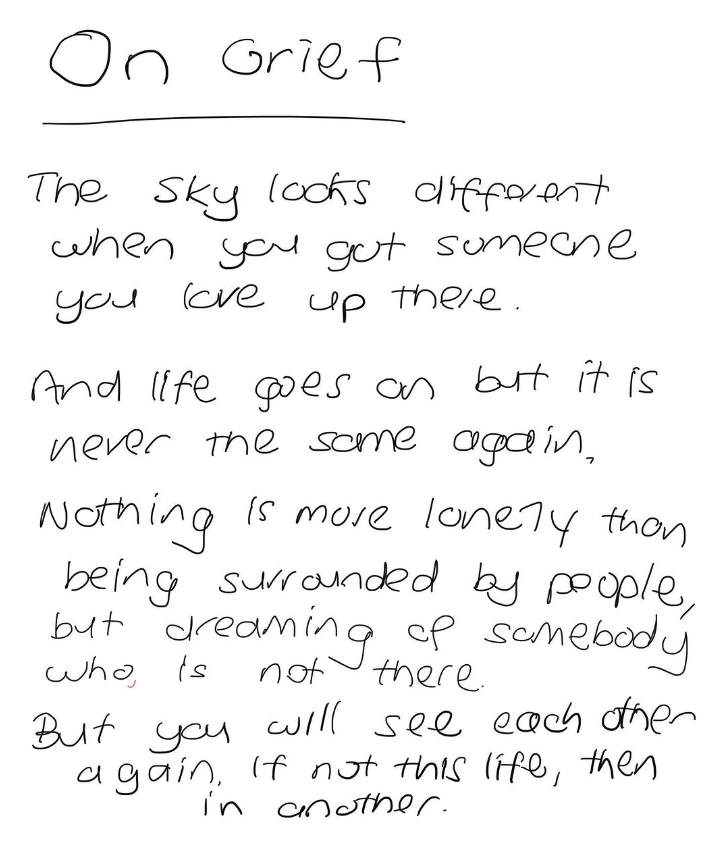 On Grief
The sky looks different
when you got someone
you love up there.
And life goes on but it is
never the same again,
Nothing is more lonely than
being surrounded by people,
but dreaming of somebody
who, is not there.
But you will see each other
again. If not this life, then
in another.